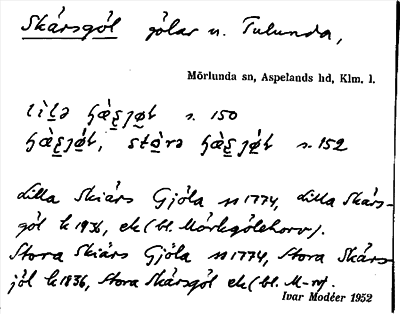 Skärsgöl gölar n. Tulunda,
Mörlunda sn, Aspelands hd, Klm. l.
s. 150
s. 152
Lilla Skiärs Gjöla 1774, Lilla Skärs-
göl k 1936, ek (bl. Mörkgölehorv).
Stora Skiärs Gjöla 1774, Stora Skärs
jöl k 1836, Stora Skärsgöl ek (bl. M-rv).
Ivar Modéer 1952